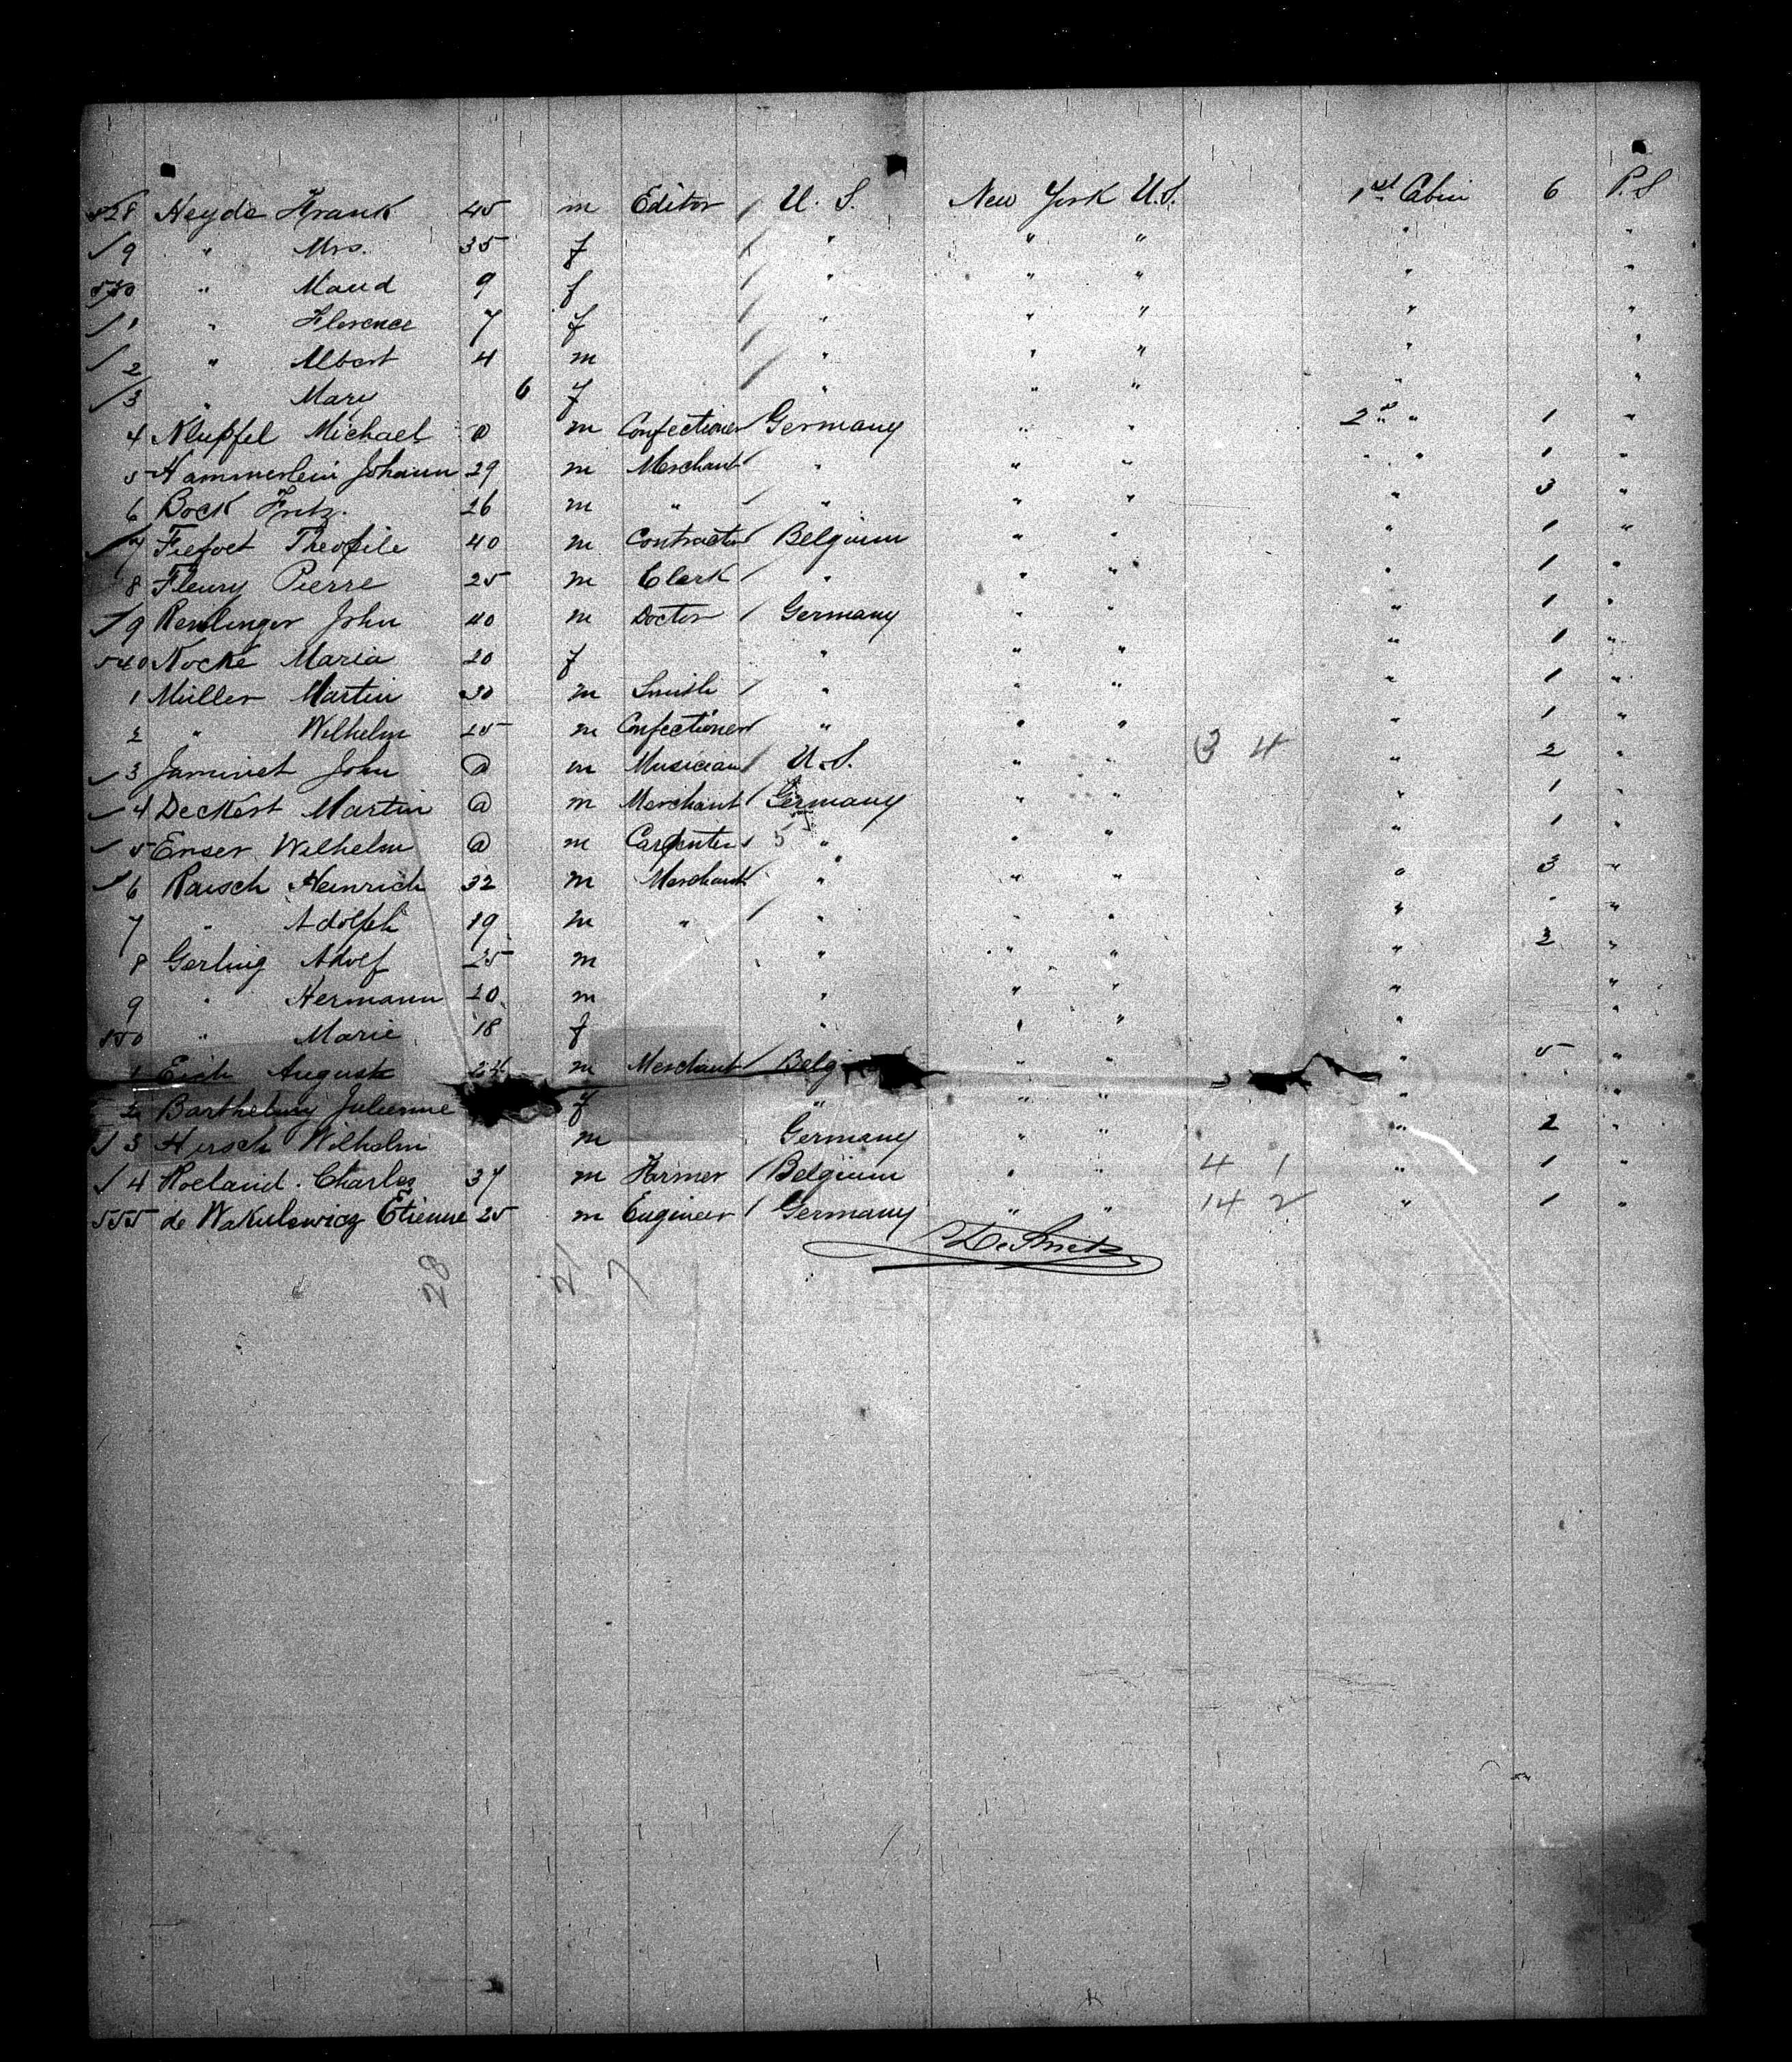 528 Heyde Frank 45 m Editor / U. S. New York U.S. 1st Cabin 6 P.S
9 " Mrs. 35 f / " " " " "
530 " Maud 9 f / " " " " "
1 " Florence 7 f / " " " " "
2 " Albert 4 m / " " " " "
3 " Mary 6 f " " " " "
4 Klupfel Michael @ m Confectioner / Germany " " 2nd " 1 "
5 Hammerlein Johann 29 m Merchant / " " " " " 1 "
6 Bock Fritz. 26 m " " " " " 3 "
7 Fiefvet Theofile 40 m Contractor Belgium " " " 1 "
8 Fleury Pierre 25 m Clerk / " " " " 1 "
9 Renlinger John 40 m Doctor / Germany " " " 1 "
540 Nocke Maria 20 f " " " " 1 "
1 Müller Martin 30 m Smith / " " " " 1 "
2 " Wilhelm 25 m Confectioner " " " " 1 "
3 Jaminet John @ m Musician / U.S. " " 3 4 " 2 "
4 Deckert Martin @ m Merchant / Germany " " " 1 "
5 Enser Wilhelm @ m Carpenter 5 " " " " 1 "
6 Raisch Heinrich 32 m Merchant " " " " 3 "
7 " Adolph 19 m " / " " " " " "
8 Gerling Adolf 25 m " " " " 3 "
9 " Hermann 20 m " " " " "
550 " Marie 18 f " " " " "
1 Eich August 24 m Merchant / Belg " " " 5 "
2 Barthelmy Julienne f " " " " "
3 Hirsch Wilhelm m Germany " " " 2 "
4 Roeland Charles 37 m Farmer / Belgium " " 4 1 " 1 "
555 de Wakulewicz Etienne 25 m Engineer / Germany " " 14 2 " 1 "
28 21 7